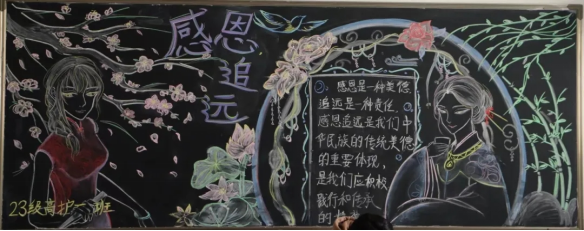 感恩
追远
①：感恩是一种美德
追远是一种责任，
感恩追远是我们中
华民族的传统美德
的重要体现，
是我们应积极
践行和传承
的
23级高护一班